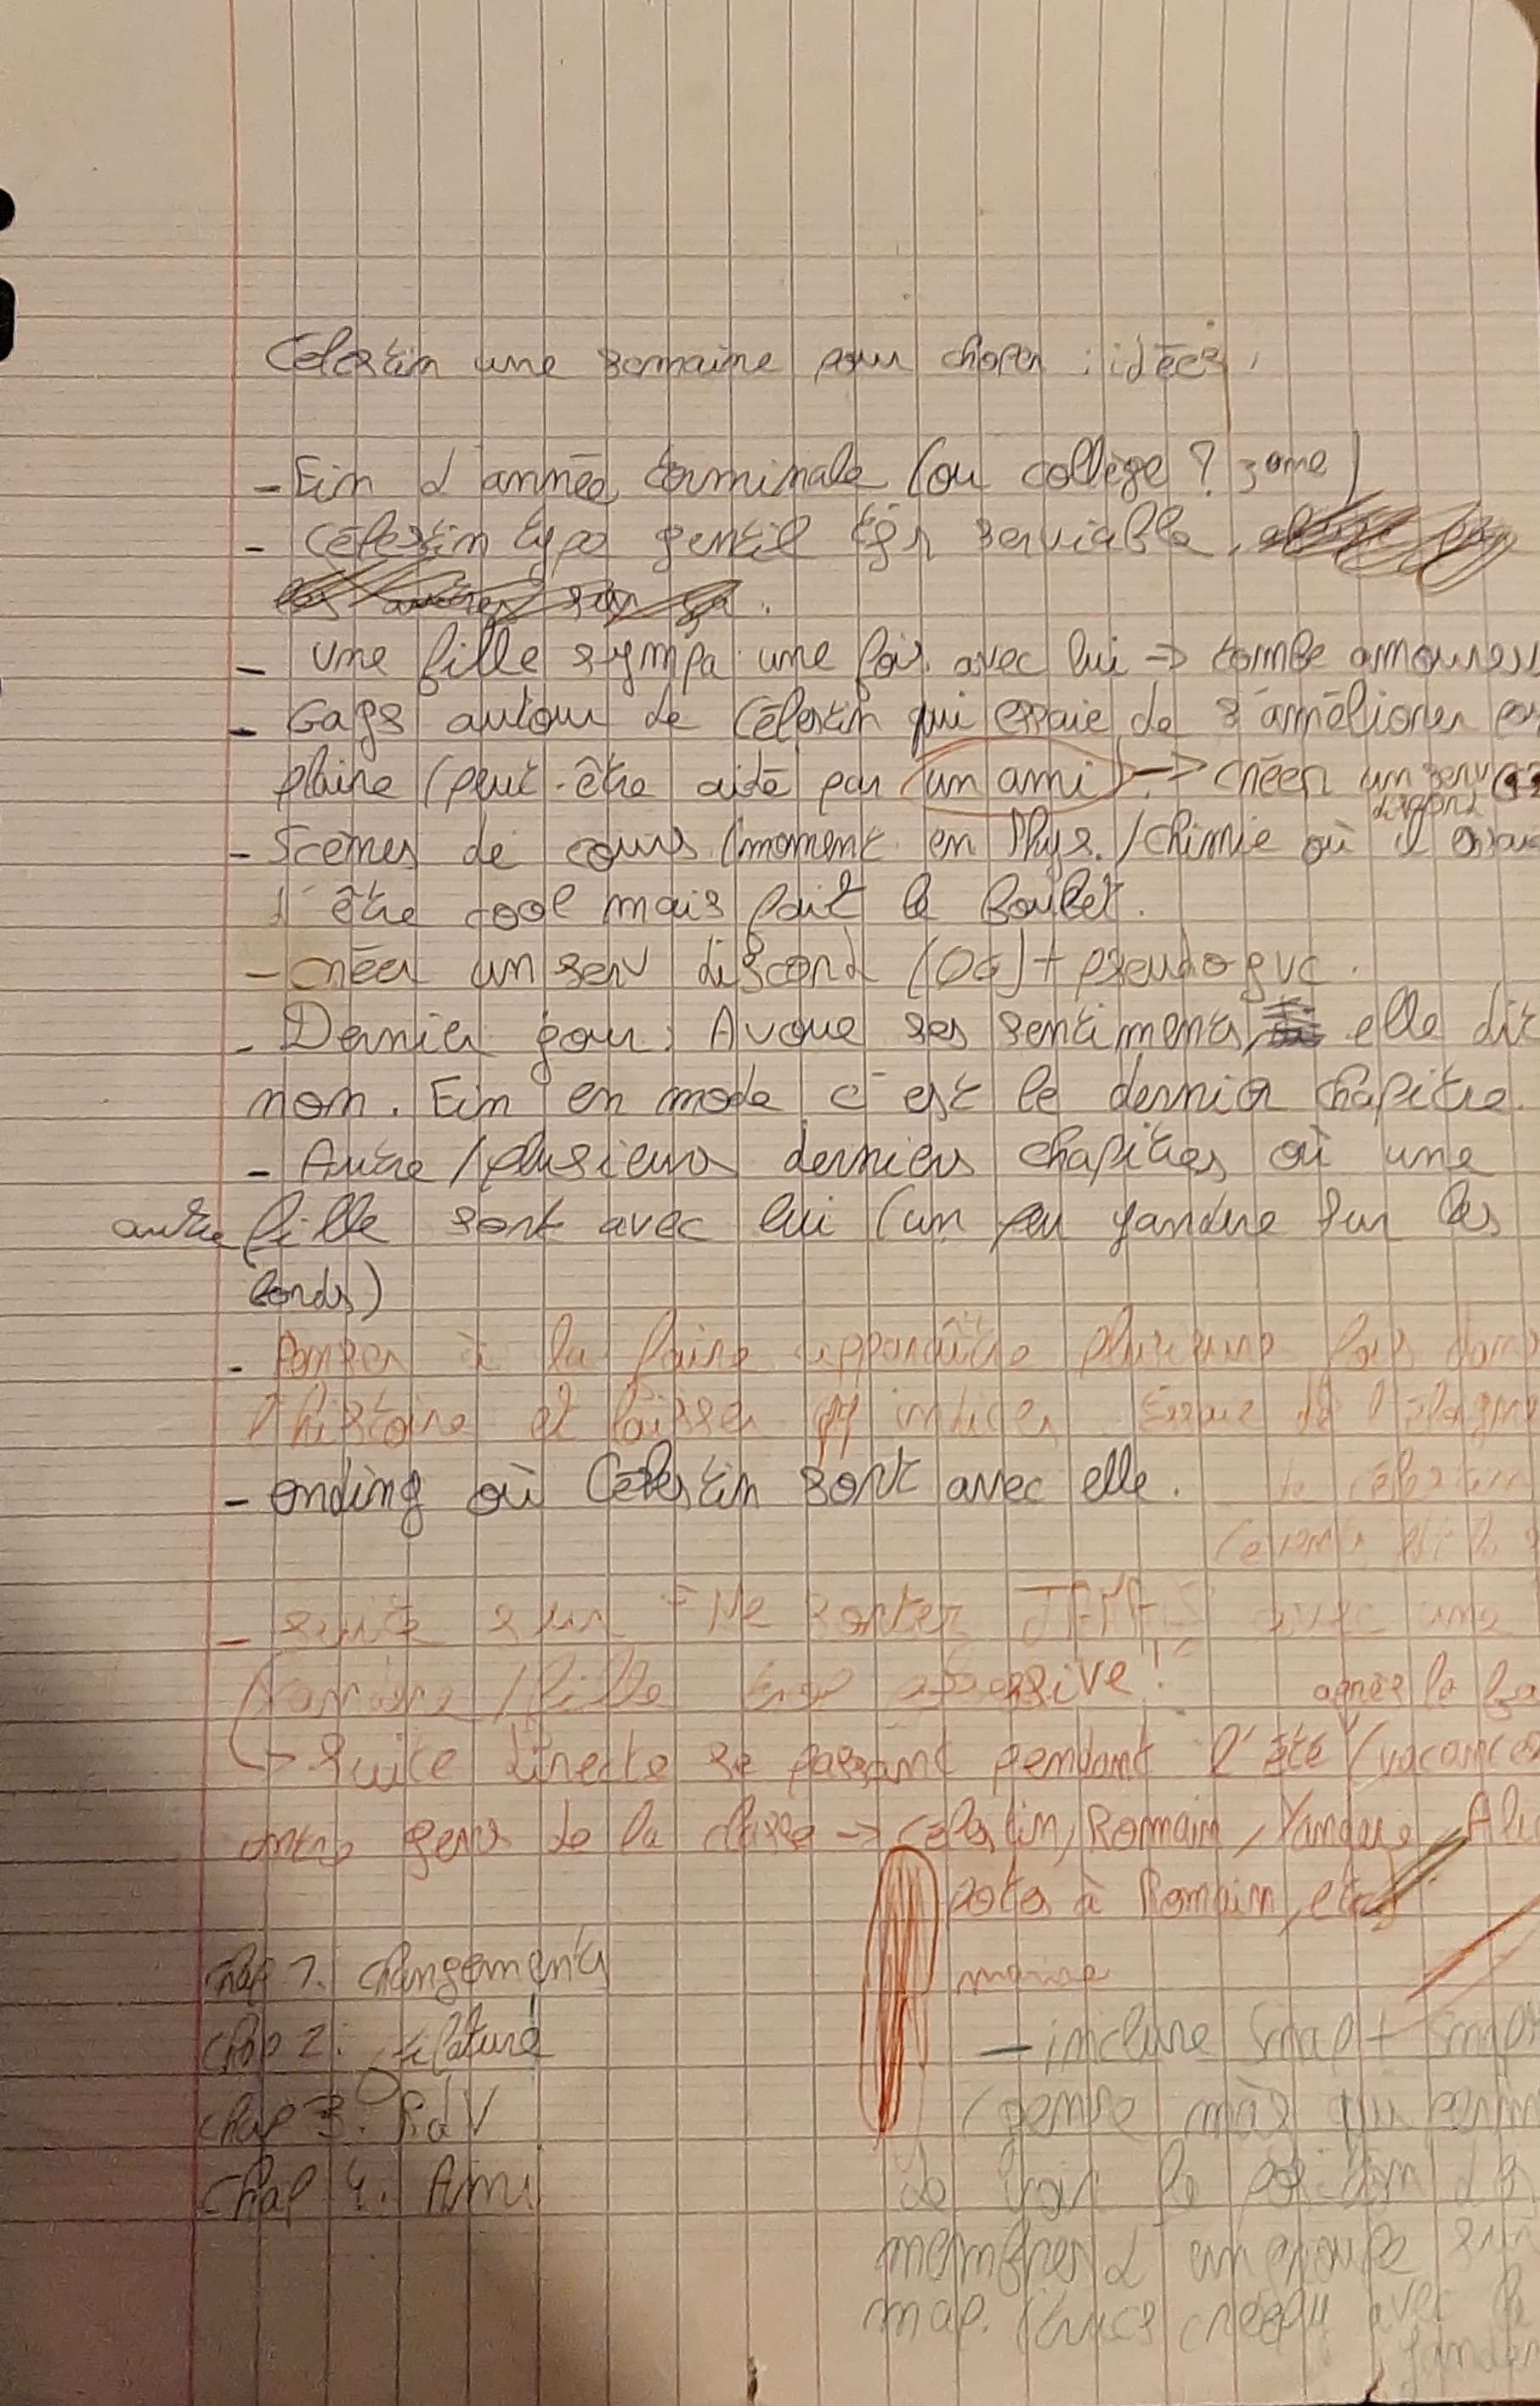 Célestin une semaine pour choper : idées,
- Fin d'année terminale (ou collège ? 3ème)
- Célestin type gentil tjs serviable,
- Une fille sympa une fois avec lui -> tombe amoureu
- Gags autour de Célestin qui essaie de s'améliorer
plaire (peut-être aidé par un ami) -> créer un serv
discord
- Scènes de cours (moment en Phys./chimie où il essaie
d'être cool mais fait le boulet.
- créer un serv discord (OG) + pseudo gvc.
- Dernier jour: Avoue ses sentiments, elle dit
non. Fin en mode c'est le dernier chapitre.
- Autre/plusieurs derniers chapitres où une
autre fille sort avec lui (un peu yandere sur les
bords)
- Penser à la faire apparaître plusieurs fois dans
l'histoire et laisser qq indices. Essaie de l'éloigne
- ending où Célestin sort avec elle. de Célestin
- suite sur "Ne sortez JAMAIS avec une
Yandere / fille trop obsessive! après le ba
-> Suite directe se passant pendant l'été/vacances
entre gens de la classe -> Célestin, Romain, Yandere, Ali
potes à Romain, etc)
Chap 1. Changements
Chap 2:
Chap 3. RdV
Chap 4. Ami
- inclure Snap +
(genre màs qui permet
de voir la position des
membres d'un groupe sur
map. (trucs avec la
yander